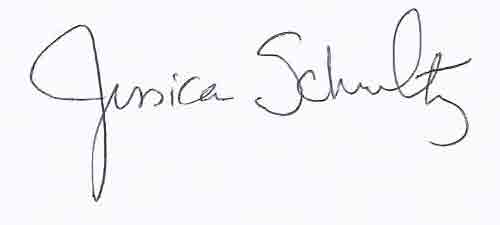 Jessica Schultz